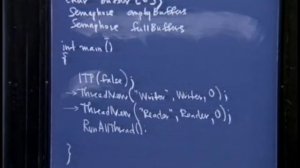 Semaphore emptyBuffers
Semaphore fullBuffers
int main()
{
ITP(false);
→ ThreadNew("Writer", Writer, 0);
→ ThreadNew("Reader", Reader, 0);
RunAllThreads();
}